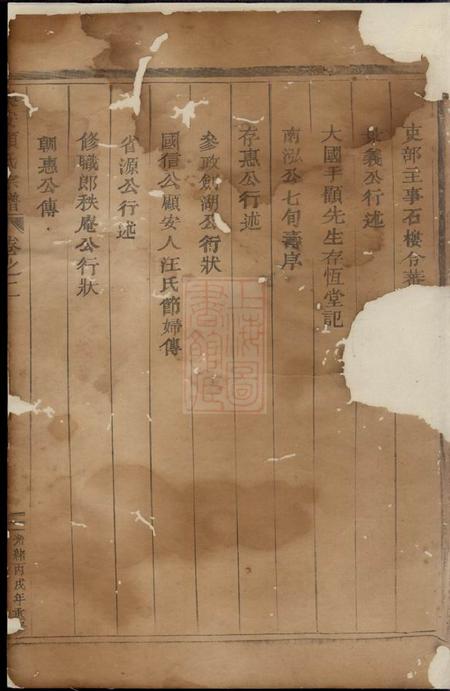 吏部主事石樓令
義公行述
大國手顧先生存恆堂記
南泓公七旬壽序
存惠公行述
參政劍湖公行狀
國信公顧安人汪氏節婦傳
省源公行述
修職郎秩庵公行狀
朝惠公傳
氏宗譜
卷之二
光緒丙戌年重
上海圖書館藏